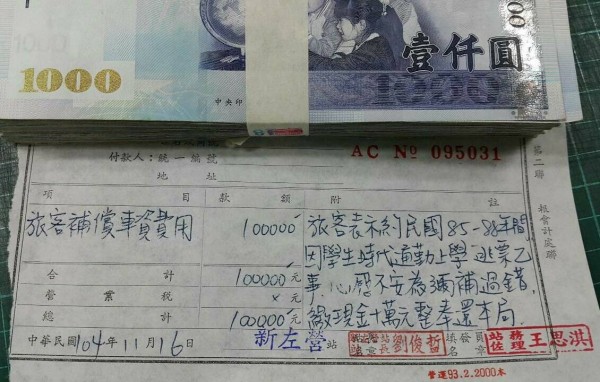 1000
中央印
壹仟圓
1000
00
付款人:統一編號
AC No 095031
地 址
第二聯
項 目
款 額
附 註
旅客補償車資費用
100000
旅客表示約民國85-88年間
因學生時代通勤上學逃票乙
事,心感不安為彌補過錯,
繳現金十萬元整奉還本局.
核會計處聯
合 計
100000元
營業稅
x元
總 計
100000元
中華民國104年11月16日
新左營
站
站長
劉俊哲
填發
名章
站務
佐理
王思洪
營運93.2.2000本